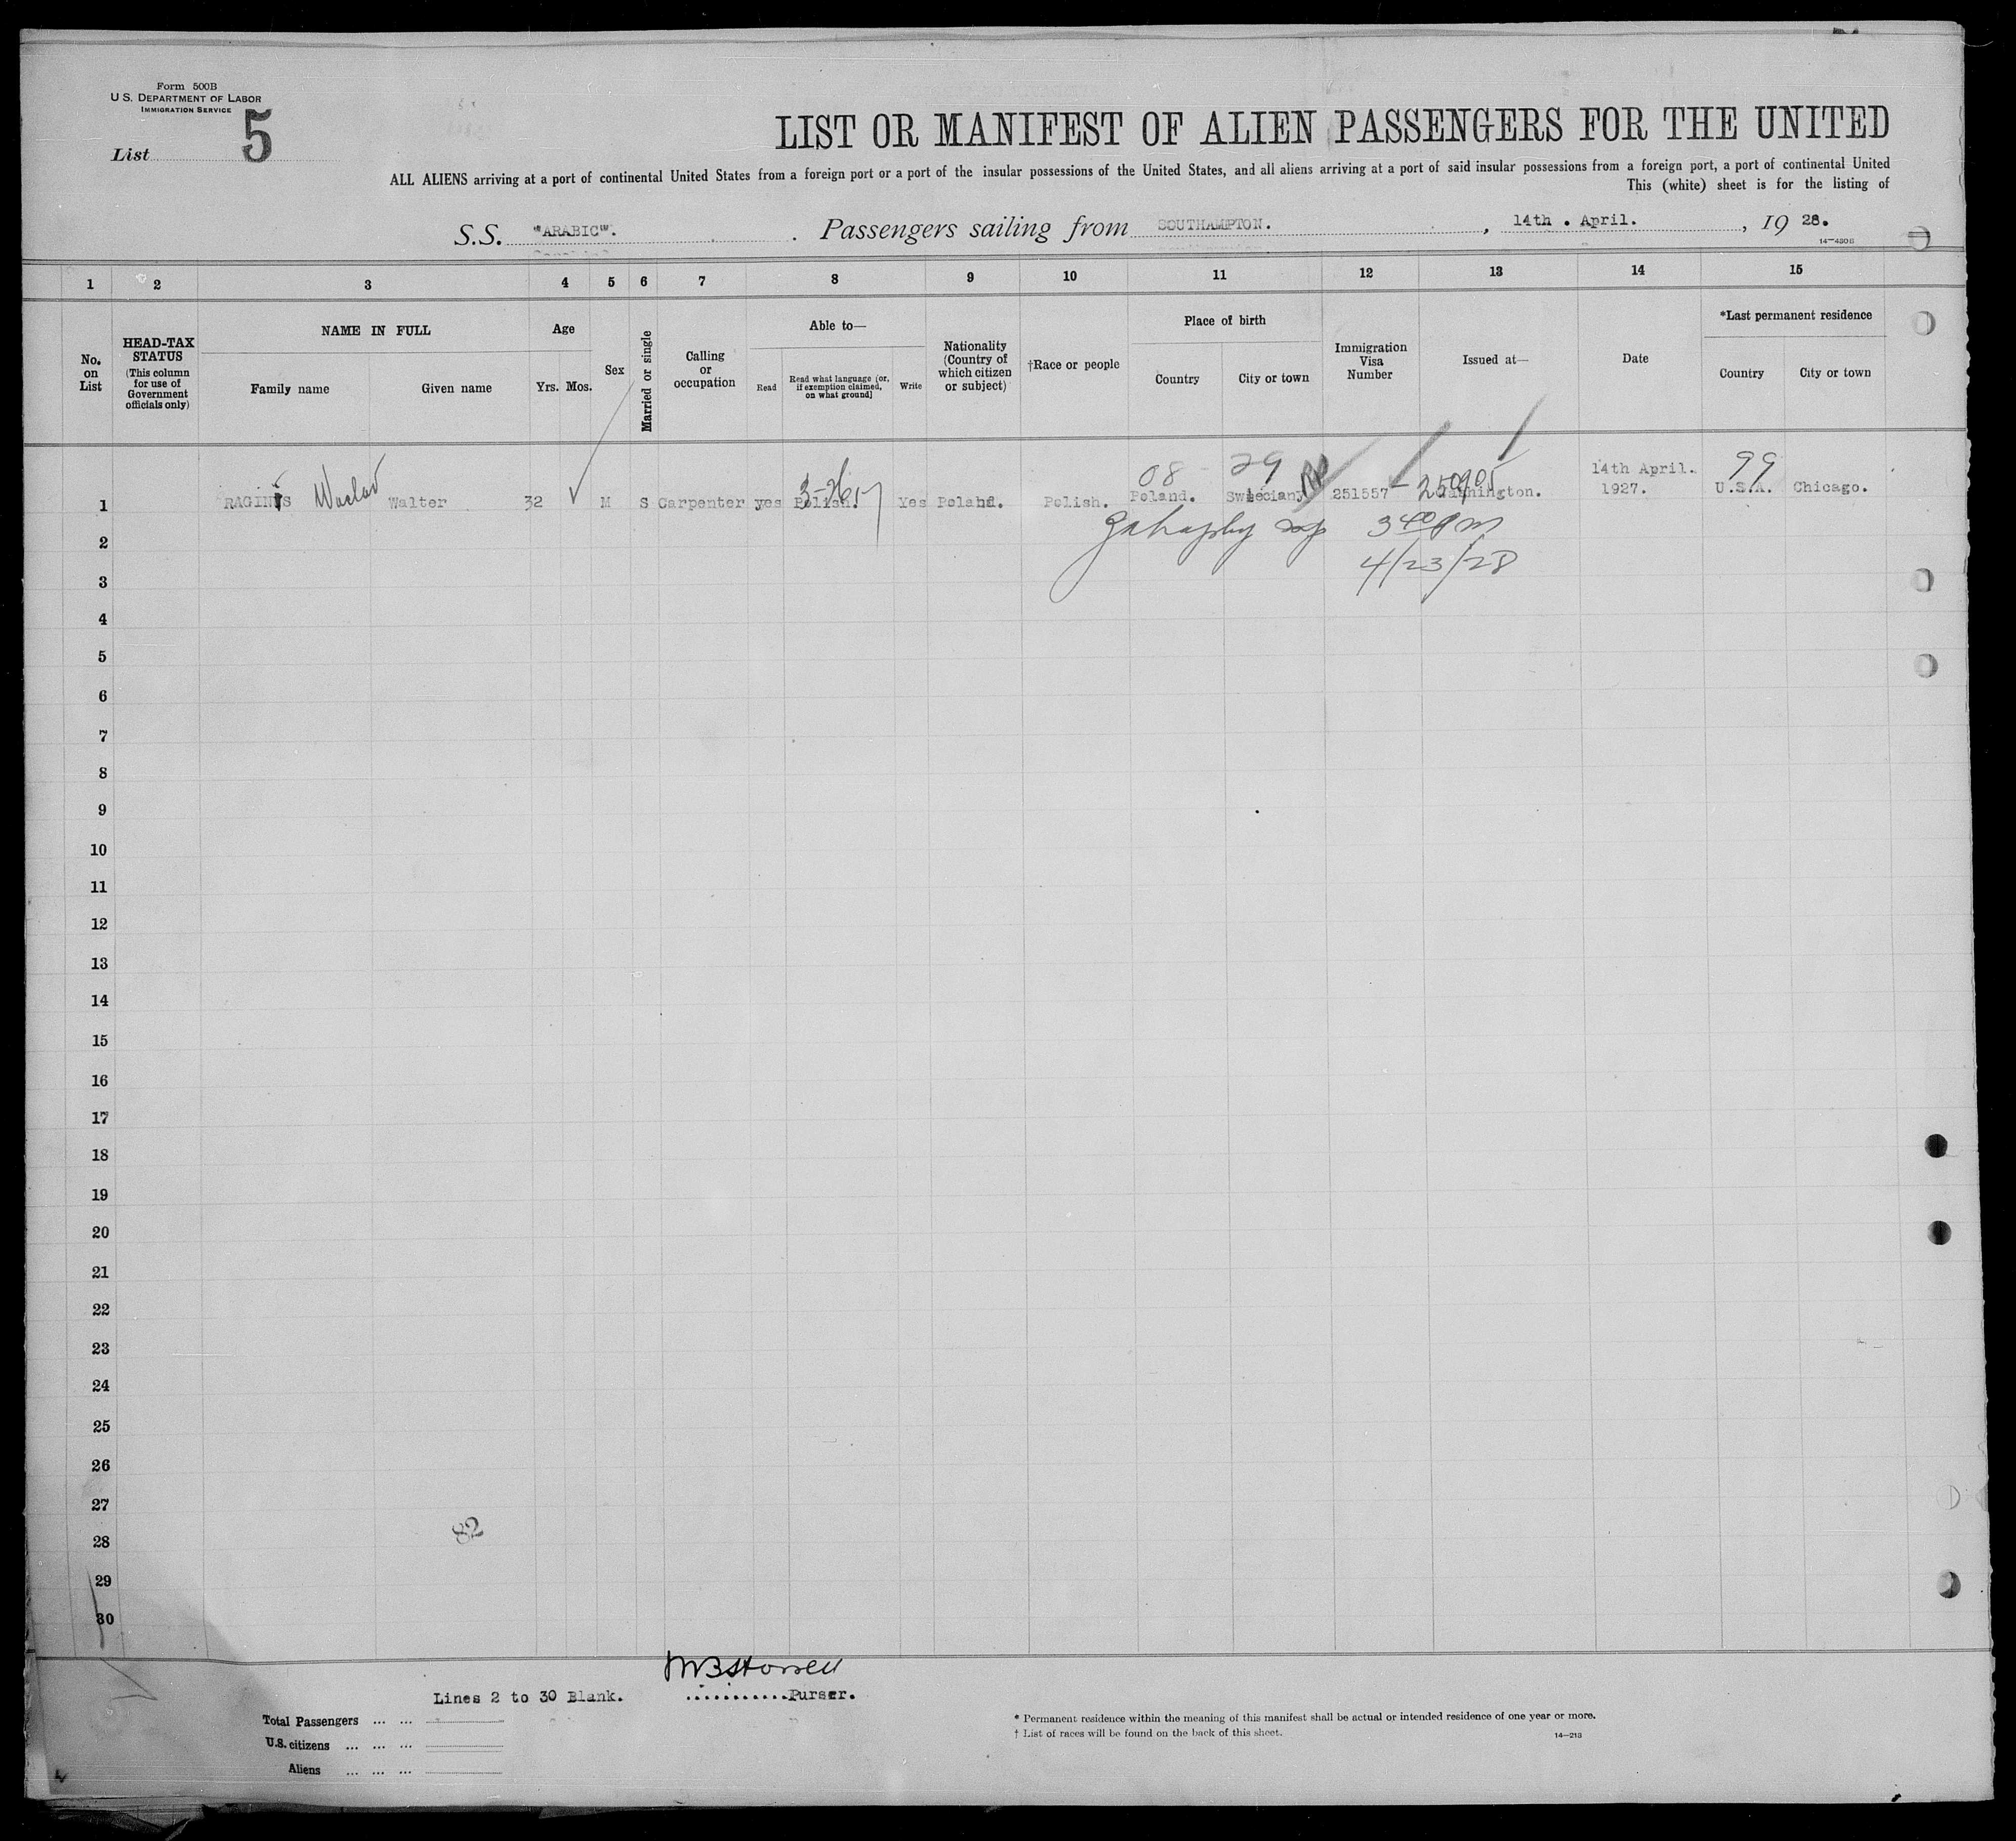 Form 500B
U. S. DEPARTMENT OF LABOR
IMMIGRATION SERVICE
List 5
LIST OR MANIFEST OF ALIEN PASSENGERS FOR THE UNITED
ALL ALIENS arriving at a port of continental United States from a foreign port or a port of the insular possessions of the United States, and all aliens arriving at a port of said insular possessions from a foreign port, a port of continental United
This (white) sheet is for the listing of
S.S. "ARABIC". Passengers sailing from SOUTHAMPTON. , 14th . April. , 19 28.
14—430B
1 2 3 4 5 6 7 8 9 10 11 12 13 14 15
No. on List
HEAD-TAX STATUS (This column for use of Government officials only)
NAME IN FULL
Family name Given name
Age
Yrs. Mos.
Sex
Married or single
Calling or occupation
Able to—
Read Read what language [or, if exemption claimed, on what ground] Write
Nationality (Country of which citizen or subject)
†Race or people
Place of birth
Country City or town
Immigration Visa Number
Issued at—
Date
*Last permanent residence
Country City or town
08 29 99
1 RAGINIS Waclav Walter 32 M S Carpenter yes Polish. Yes Poland. Polish. Poland. Swieciany 251557 Washington. 14th April. 1927. U.S.A. Chicago.
3 40 pm
2
4/23/28
3
4
5
6
7
8
9
10
11
12
13
14
15
16
17
18
19
20
21
22
23
24
25
26
27
28
82
29
30
Lines 2 to 30 Blank. ............Purser.
Total Passengers ... ...
U.S. citizens ... ... ...
Aliens ... ... ...
* Permanent residence within the meaning of this manifest shall be actual or intended residence of one year or more.
† List of races will be found on the back of this sheet.
14—213